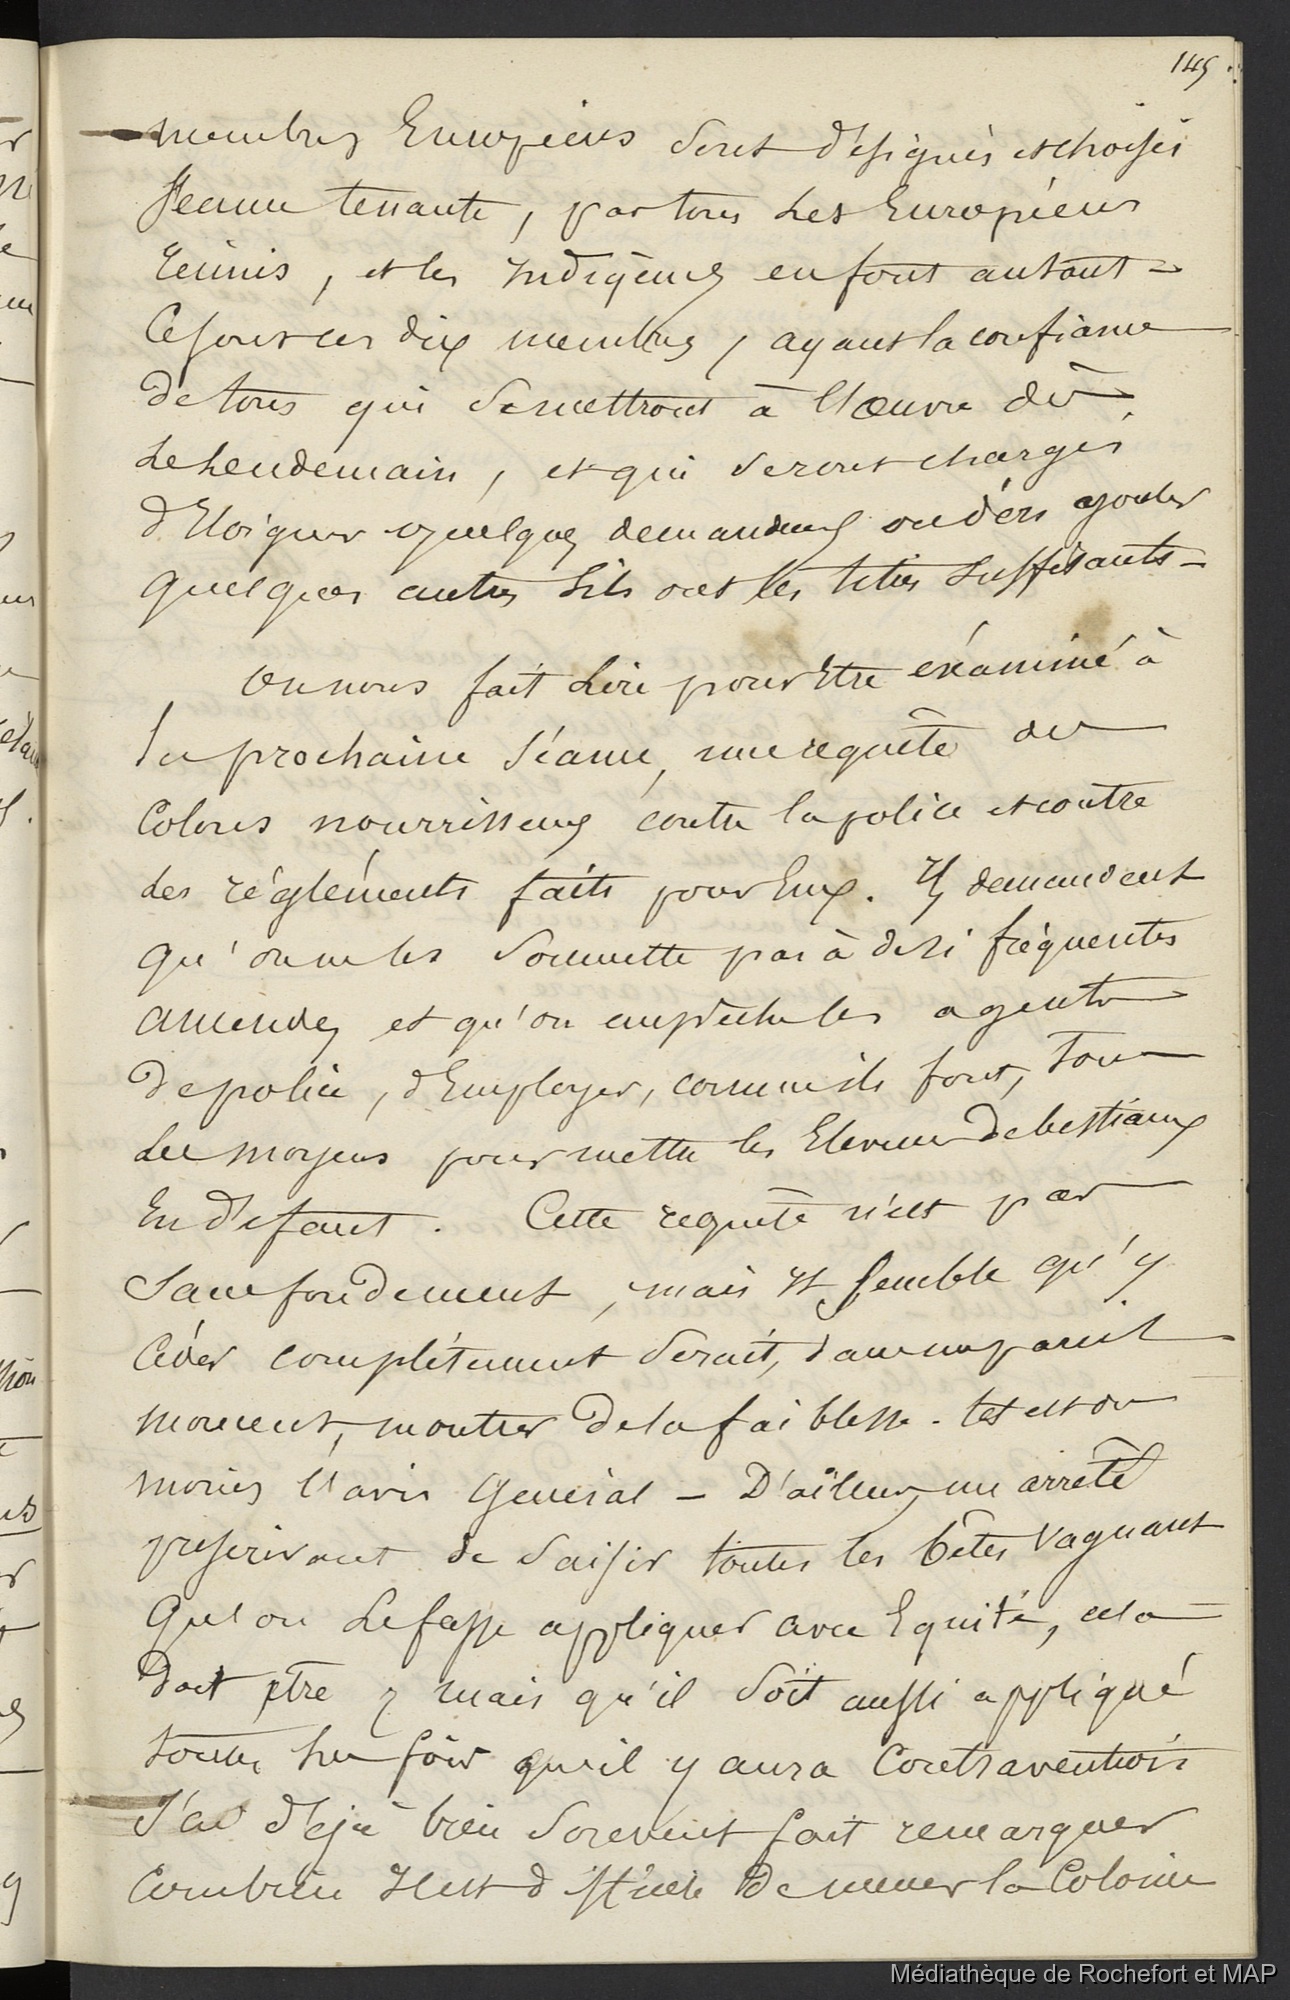 145
membres Européens sont désignés et choisis
séance tenante, par tous les Européens
réunis, et les Indigènes en font autant -
Ce sont ces dix membres, ayant la confiance
de tous qui se mettront à l'œuvre dès
le lendemain, et qui seront chargés
d'éloigner quelques demandeurs ou d'en ajouter
quelques autres s'ils ont les titres suffisants -
On nous fait lire pour être éxaminé à
la prochaine séance, une requête des
Colons nourrisseurs contre la police et contre
les réglements faits pour Eux. Ils demandent
qu'on ne les soumette pas à de si fréquentes
amendes et qu'on empêche les agents
de police, d'Employer, comme ils font, tous
les moyens pour mettre les Eleveurs de bestiaux
En défaut. Cette requête n'est pas
sans fondement, mais Il semble qu'y
céder complétement serait, dans un pareil
moment, montrer de la faiblesse. tel est du
moins l'avis général - D'ailleurs, un arrêté
prescrivant de saisir toutes les bêtes vaguant
qu'on le fasse appliquer avec Equité, cela
doit être, mais qu'il soit aussi appliqué
toutes les fois qu'il y aura Contravention
J'ai déjà bien souvent fait remarquer
combien Il est difficile de mener la Colonie
Médiathèque de Rochefort et MAP